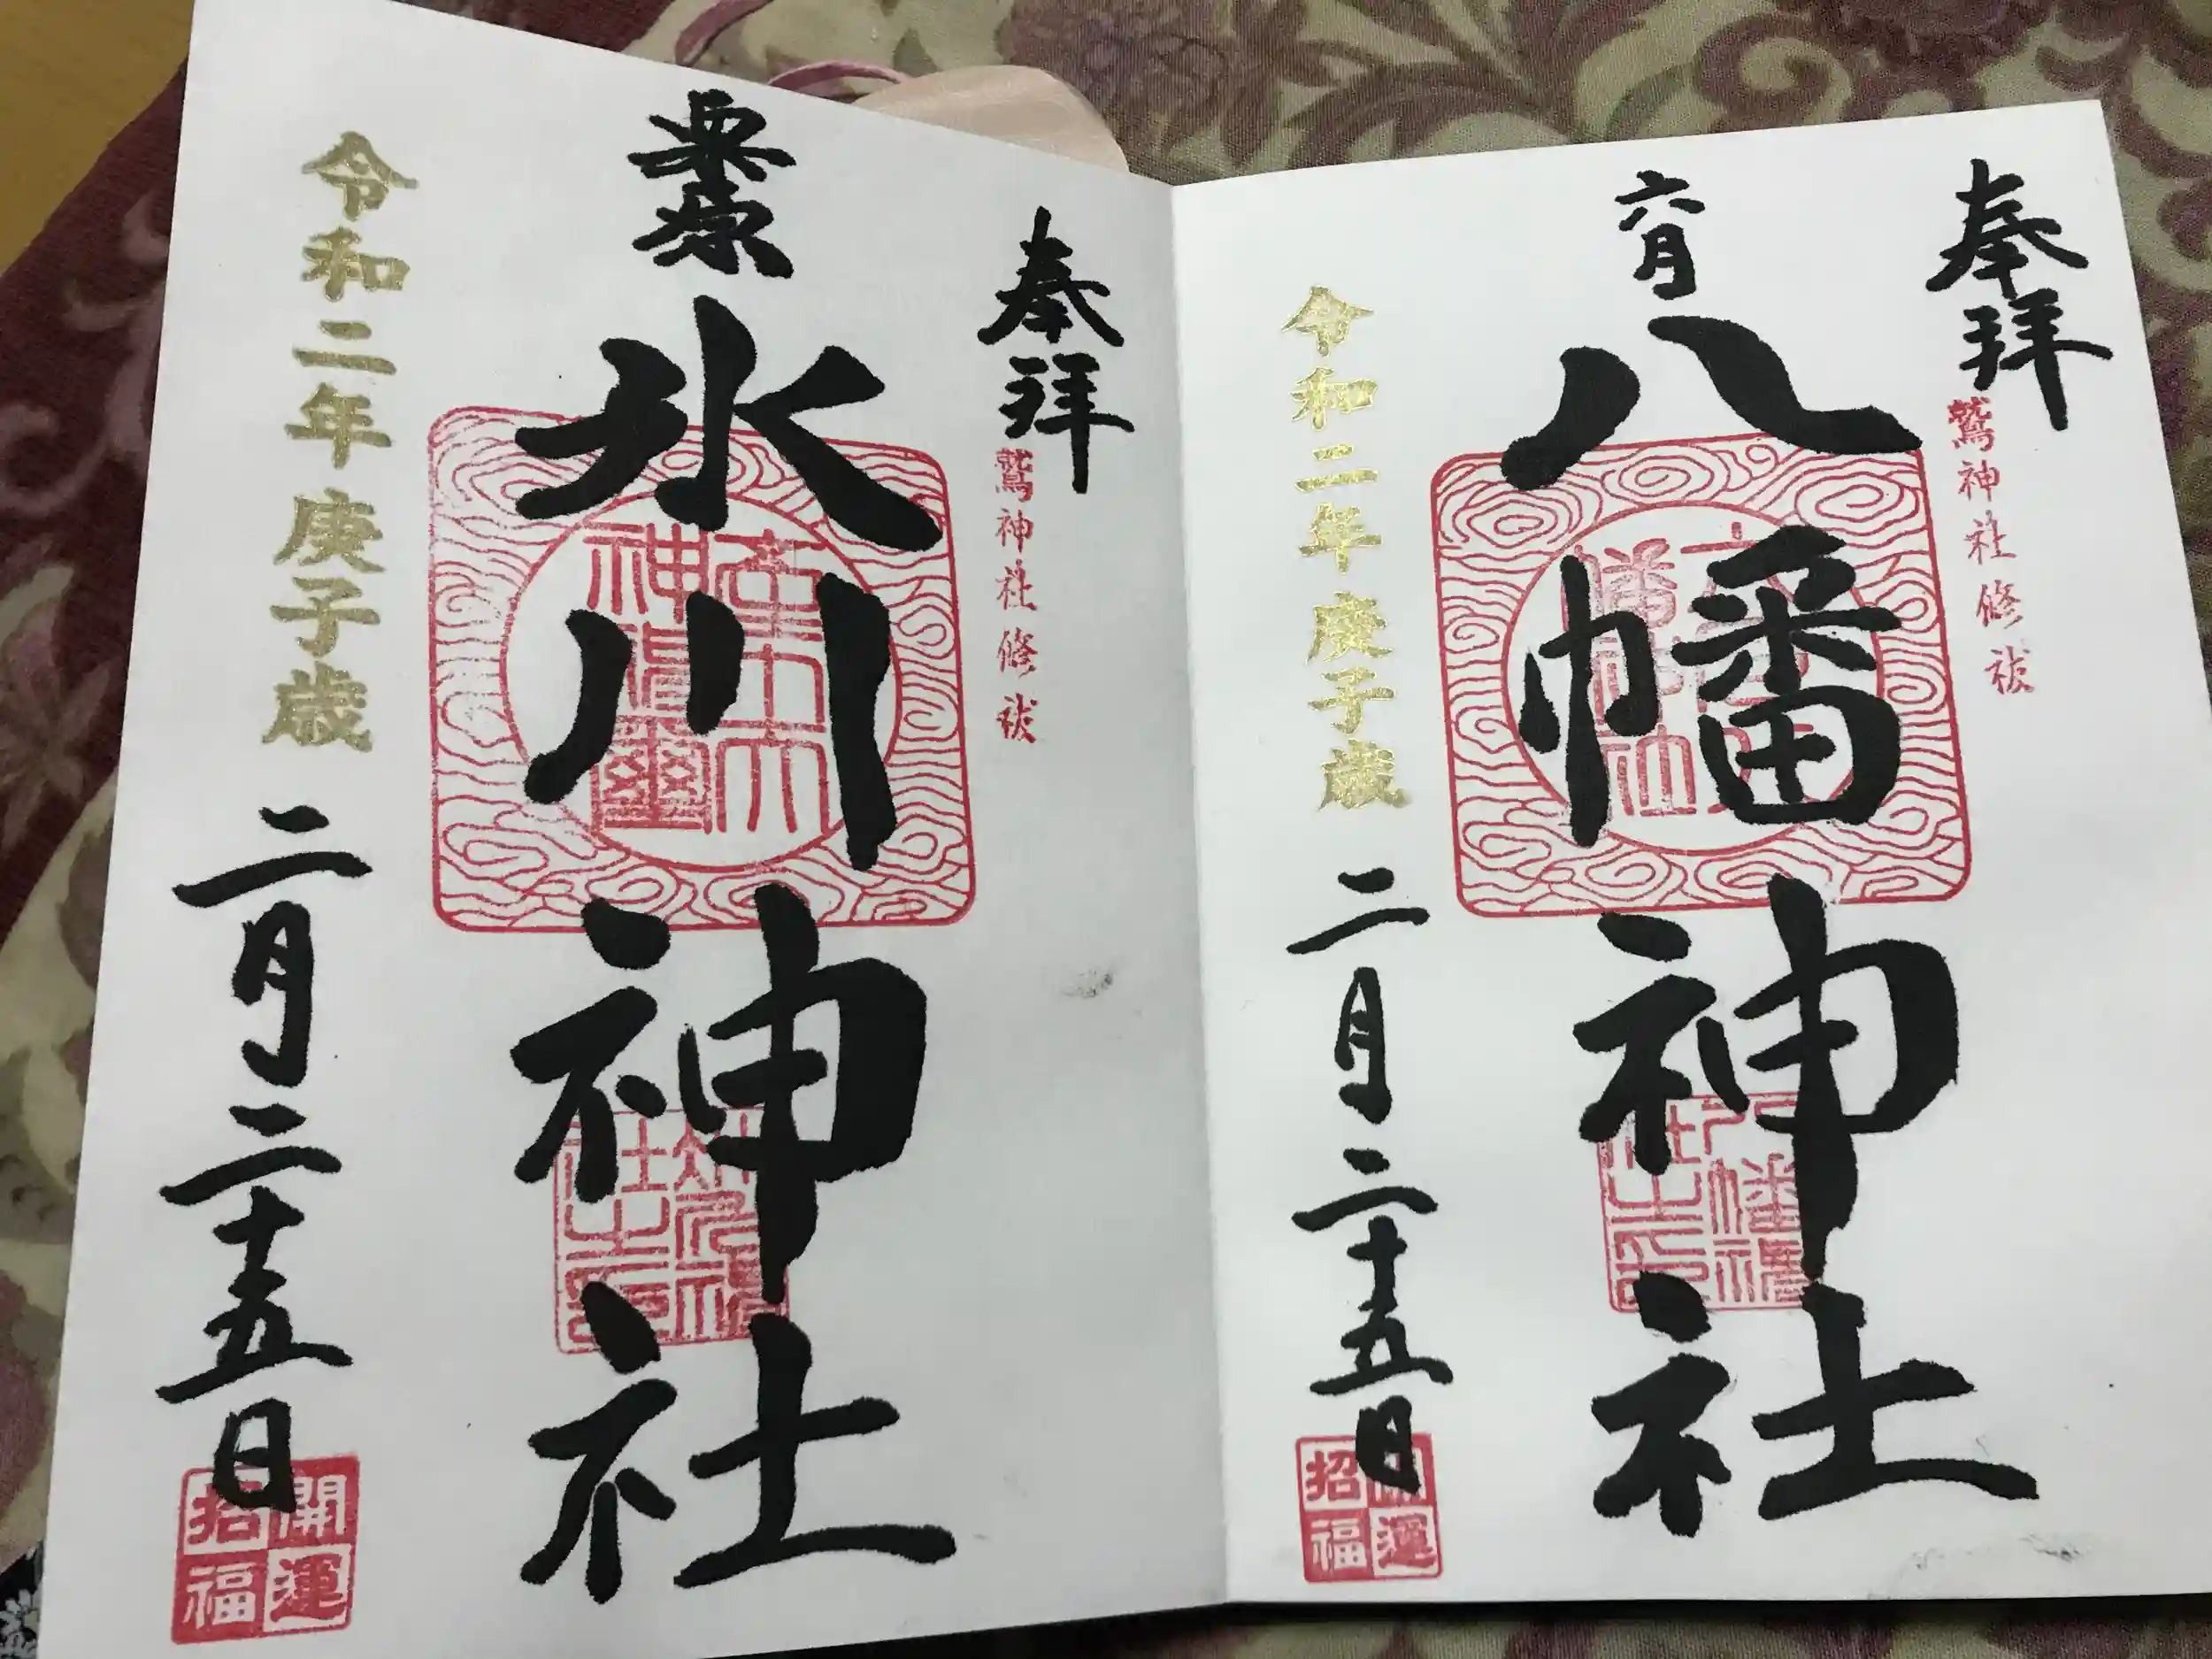 奉拝
鷲神社修祓
六月
八幡神社
令和二年庚子歳
二月二十五日
開運
招福
奉拝
鷲神社修祓
栗原
氷川神社
令和二年庚子歳
二月二十五日
開運
招福